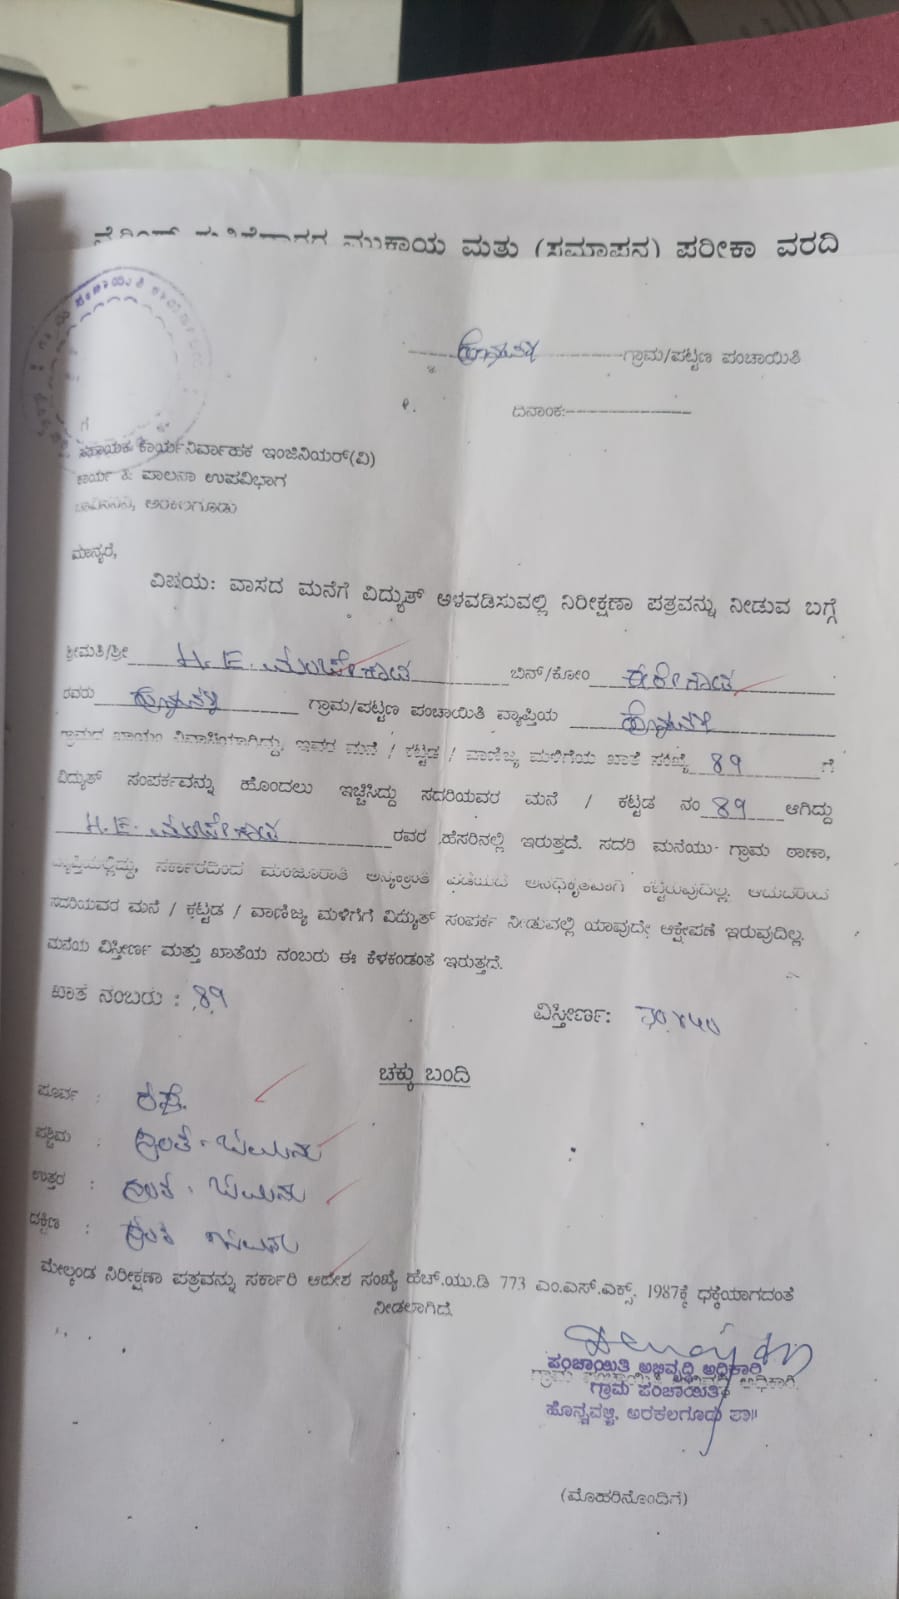 ಮುಕಾಯ ಮತು (ಸಮಾಪನ) ಪರೀಕಾ ವರದಿ
ಗ್ರಾಮ/ಪಟ್ಟಣ ಪಂಚಾಯಿತಿ
ದಿನಾಂಕ:--------------------
ಗೆ
ಸಹಾಯಕ ಕಾರ್ಯನಿರ್ವಾಹಕ ಇಂಜಿನಿಯರ್(ವಿ)
ಕಾರ್ಯ & ಪಾಲನಾ ಉಪವಿಭಾಗ
ಚಾವಿಸನಿನಿ, ಅರಕಲಗೂಡು
ಮಾನ್ಯರೆ,
ವಿಷಯ: ವಾಸದ ಮನೆಗೆ ವಿದ್ಯುತ್ ಅಳವಡಿಸುವಲ್ಲಿ ನಿರೀಕ್ಷಣಾ ಪತ್ರವನ್ನು ನೀಡುವ ಬಗ್ಗೆ
ಶ್ರೀಮತಿ/ಶ್ರೀ H.E. ಮಂಜೇಗೌಡ ಬಿನ್/ಕೋಂ ಈರೇಗೌಡ
ರವರು ಗ್ರಾಮ/ಪಟ್ಟಣ ಪಂಚಾಯಿತಿ ವ್ಯಾಪ್ತಿಯ
ಗ್ರಾಮದ ಖಾಯಂ ನಿವಾಸಿಯಾಗಿದ್ದು, ಇವರ ಮನೆ / ಕಟ್ಟಡ / ವಾಣಿಜ್ಯ ಮಳಿಗೆಯ ಖಾತೆ ಸಂಖ್ಯೆ 89 ಗೆ
ವಿದ್ಯುತ್ ಸಂಪರ್ಕವನ್ನು ಹೊಂದಲು ಇಚ್ಚಿಸಿದ್ದು ಸದರಿಯವರ ಮನೆ / ಕಟ್ಟಡ ನಂ 89 ಆಗಿದ್ದು
H.E. ಮಂಜೇಗೌಡ ರವರ ಹೆಸರಿನಲ್ಲಿ ಇರುತ್ತದೆ. ಸದರಿ ಮನೆಯು ಗ್ರಾಮ ಠಾಣಾ,
ವ್ಯಾಪ್ತಿಯಲ್ಲಿದ್ದು, ಸರ್ಕಾರದಿಂದ ಮಂಜೂರಾತಿ ಪಡೆಯದೆ ಅನಧಿಕೃತವಾಗಿ ಕಟ್ಟಿರುವುದಿಲ್ಲ. ಆದುದರಿಂದ
ಸದರಿಯವರ ಮನೆ / ಕಟ್ಟಡ / ವಾಣಿಜ್ಯ ಮಳಿಗೆಗೆ ವಿದ್ಯುತ್ ಸಂಪರ್ಕ ನೀಡುವಲ್ಲಿ ಯಾವುದೇ ಆಕ್ಷೇಪಣೆ ಇರುವುದಿಲ್ಲ.
ಮನೆಯ ವಿಸ್ತೀರ್ಣ ಮತ್ತು ಖಾತೆಯ ನಂಬರು ಈ ಕೆಳಕಂಡಂತೆ ಇರುತ್ತದೆ.
ಖಾತೆ ನಂಬರು : 89 ವಿಸ್ತೀರ್ಣ: 30X40
ಚಕ್ಕು ಬಂದಿ
ಪೂರ್ವ : ರಸ್ತೆ
ಪಶ್ಚಿಮ : ಸ್ವಂತ ಜಮೀನು
ಉತ್ತರ : ಸ್ವಂತ ಜಮೀನು
ದಕ್ಷಿಣ : ಸ್ವಂತ ಜಮೀನು
ಮೇಲ್ಕಂಡ ನಿರೀಕ್ಷಣಾ ಪತ್ರವನ್ನು ಸರ್ಕಾರಿ ಆದೇಶ ಸಂಖ್ಯೆ ಹೆಚ್.ಯು.ಡಿ 773 ಎಂ.ಎಸ್.ಎಕ್ಸ್. 1987ಕ್ಕೆ ಧಕ್ಕೆಯಾಗದಂತೆ
ನೀಡಲಾಗಿದೆ
ಪಂಚಾಯಿತಿ ಅಭಿವೃದ್ಧಿ ಅಧಿಕಾರಿ
ಗ್ರಾಮ ಪಂಚಾಯಿತಿ
ಹೊನ್ನವಳ್ಳಿ, ಅರಕಲಗೂಡು ತಾ॥
(ಮೊಹರಿನೊಂದಿಗೆ)